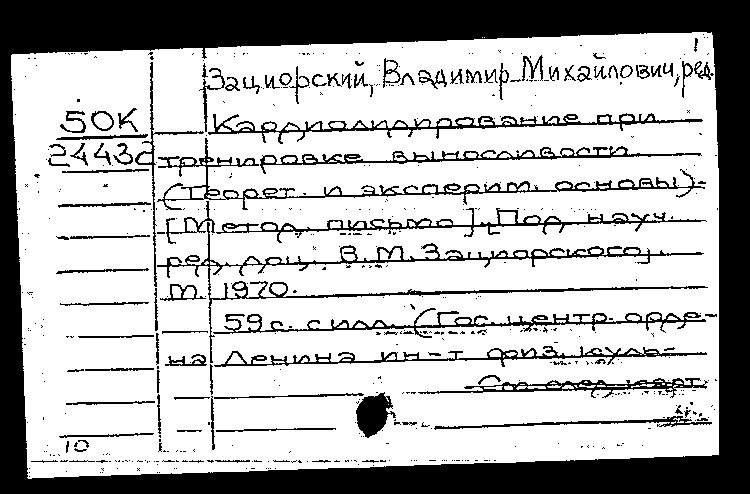 1
Зациорский, Владимир Михайлович, ред.
50К
2443с
Кардиолидирование при
тренировке выносливости
(Теорет. и эксперим. основы).
[Метод. письмо]. [Под науч.
ред. доц. В.М. Зациорского].
М. 1970.
59 с. с илл. (Гос. центр. орде-
на Ленина ин-т физ. куль-
См. след. карт.
10